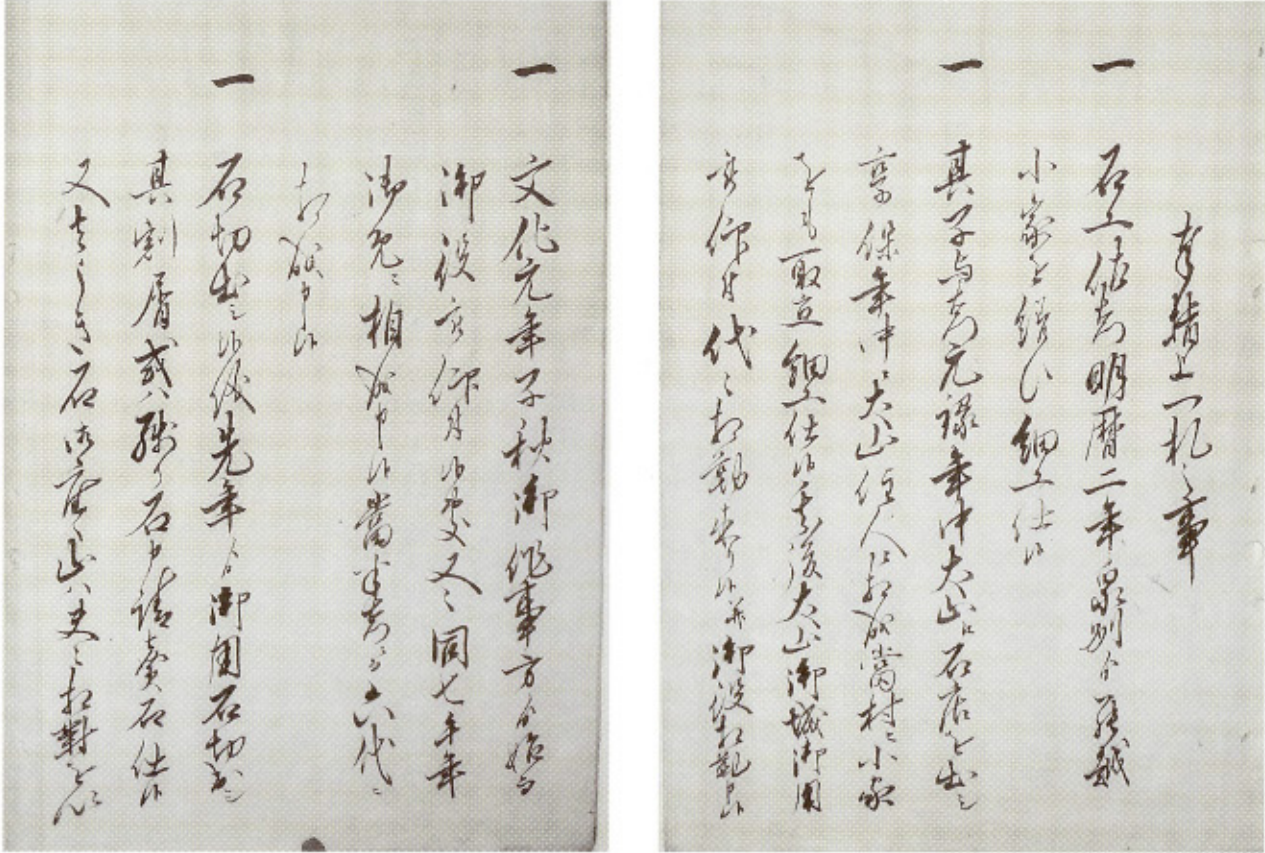 奉差上一札之事
一 石工佐吉明暦二年泉州ゟ罷越
小家を結ひ細工仕候
一 其子与吉元禄年中大山江石店を出し
享保年中ニ大山住人江相成當村ニ小家
をも取立細工仕候其後大山御城御用
被仰付代々相勤来り候并御役相勤
一 文化元年子秋御作事方ゟ始而
御役被仰付候処又々同七午年
御免ニ相成申候當半吉ゟ六代ニ
相成申候
一 石切出シ候後先年ゟ御用石切出シ
其割屑或ハ残り石申請賣石仕候
又き石御座候山ハ夫々相對を以